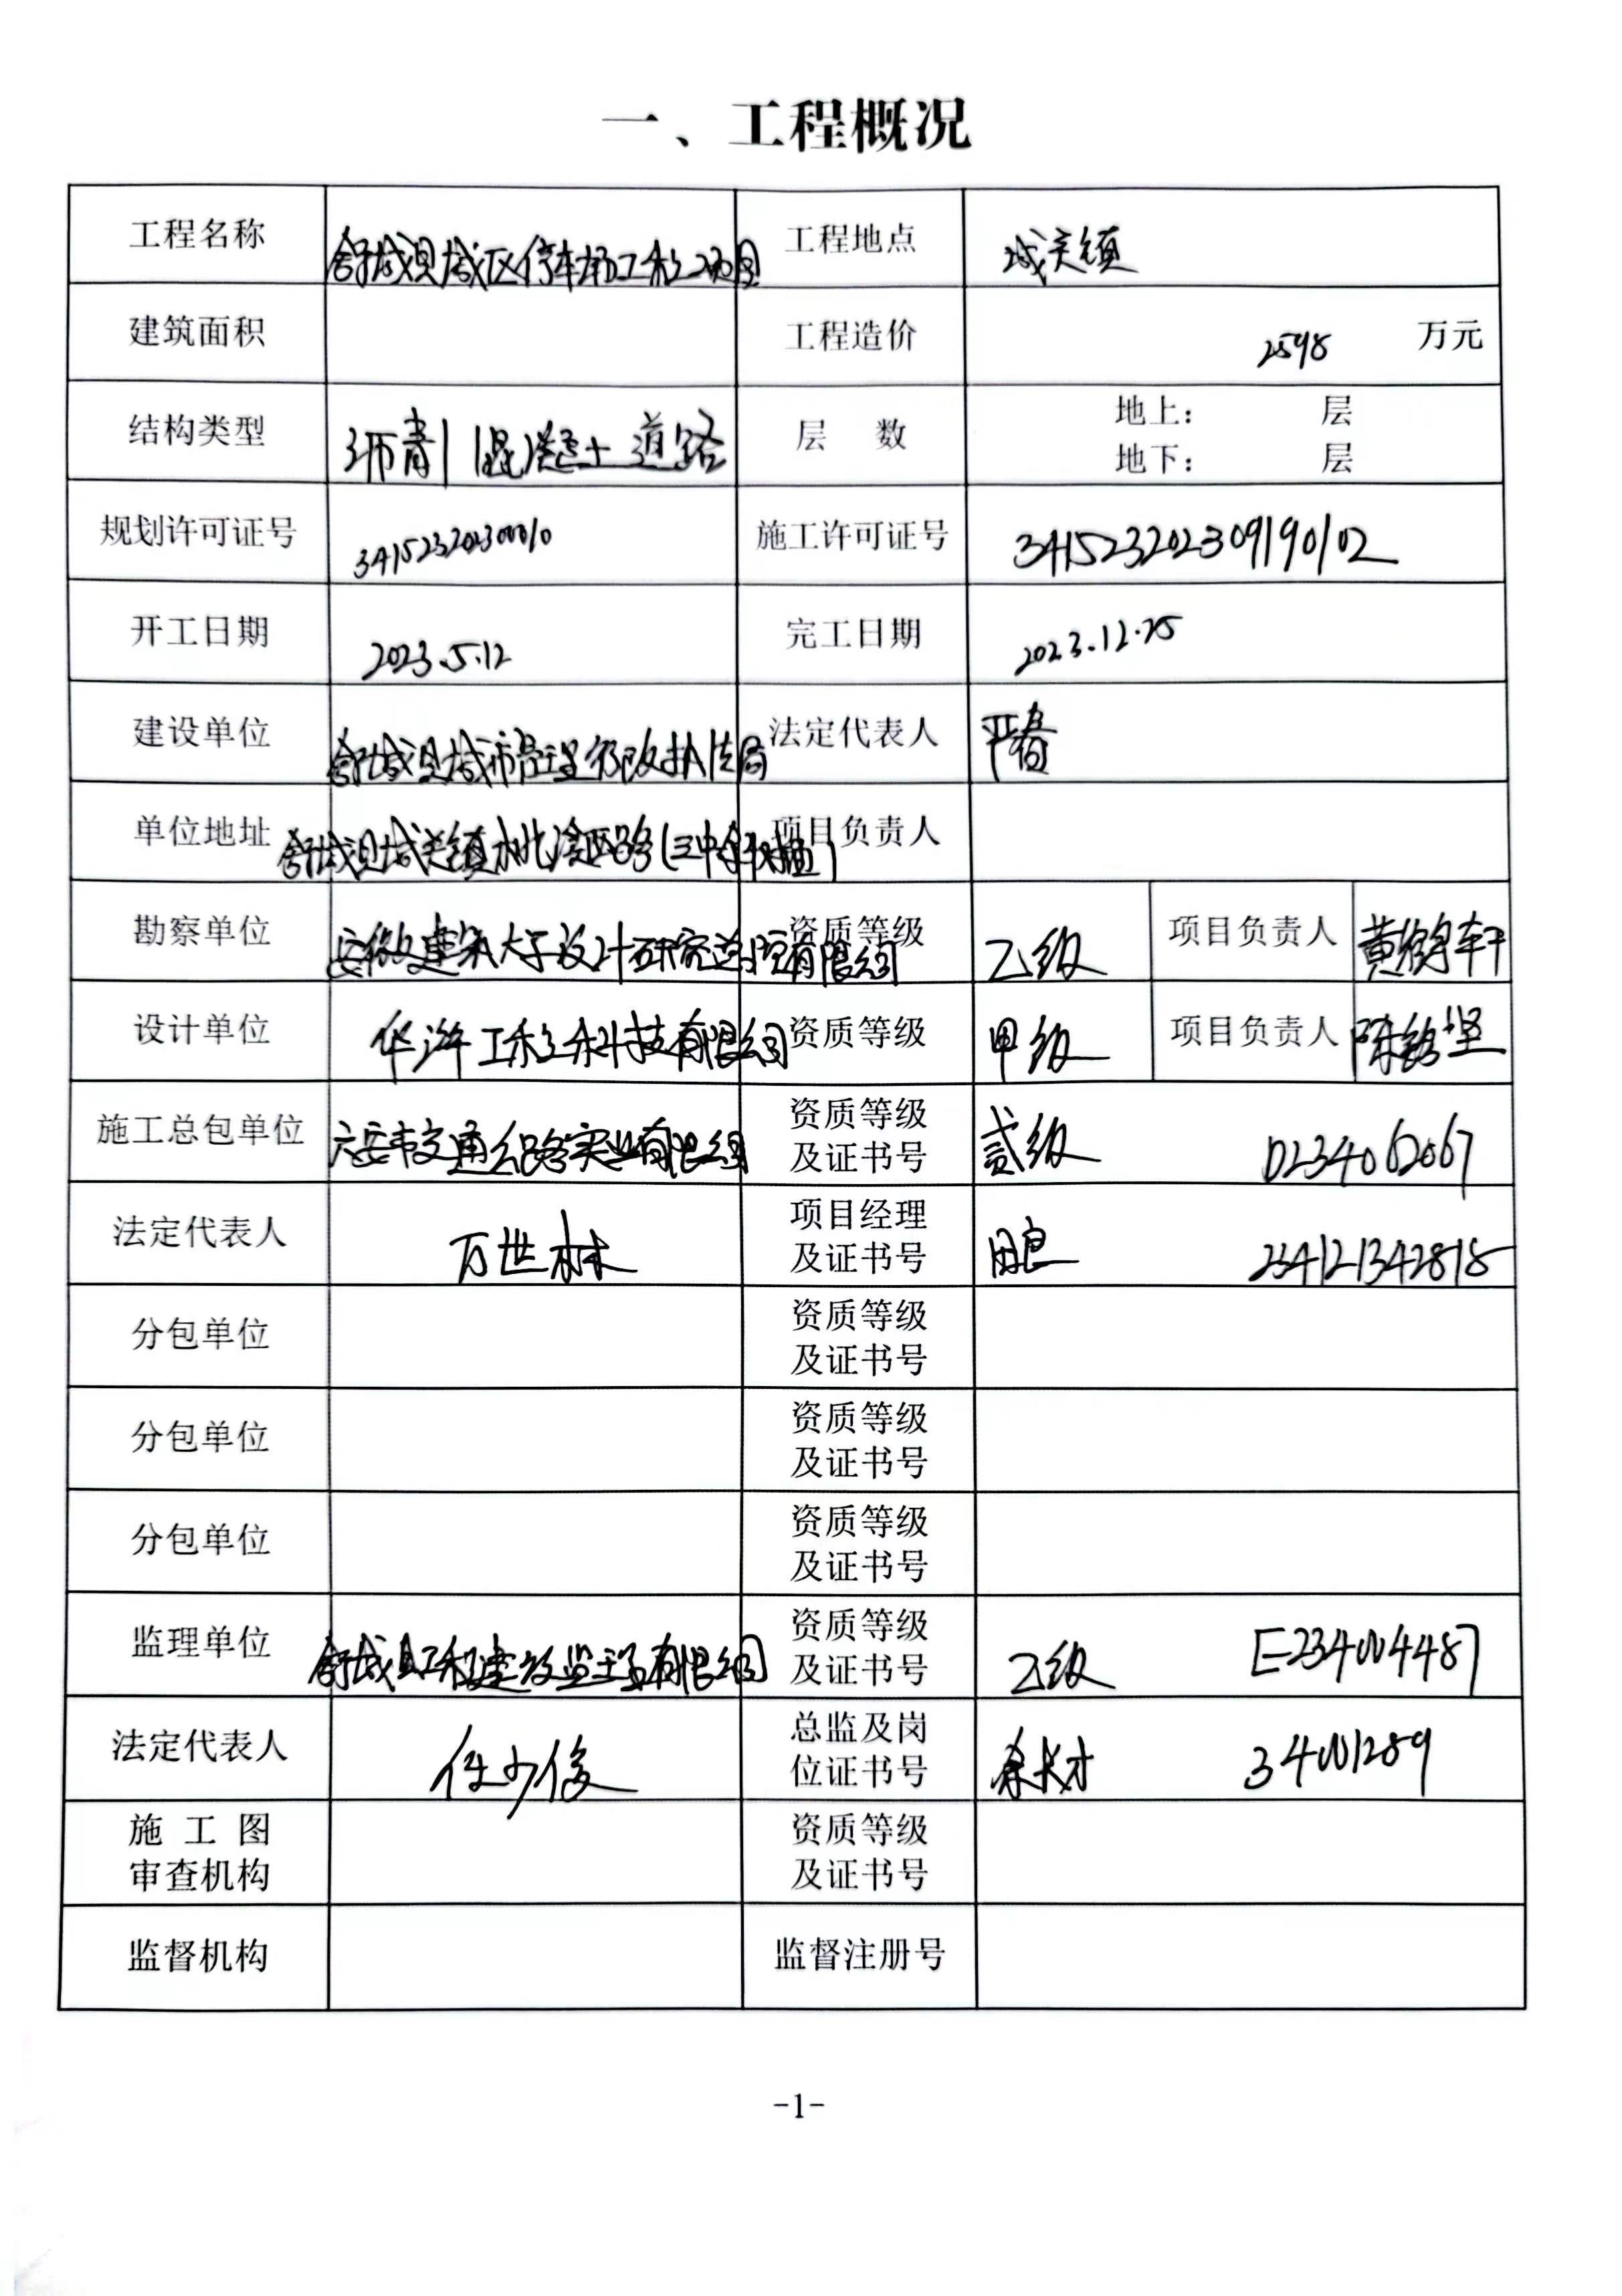 一、工程概况
工程名称 舒城县城区停车场工程项目 工程地点 城关镇
建筑面积 工程造价 2598 万元
结构类型 沥青混凝土道路 层 数 地上： 层
地下： 层
规划许可证号 341523202300010 施工许可证号 341523202309190102
开工日期 2023.5.12 完工日期 2023.12.25
建设单位 舒城县城市管理行政执法局 法定代表人 严春
单位地址 舒城县城关镇 项目负责人
勘察单位 安徽建筑大学设计研究总院有限公司 资质等级 乙级 项目负责人
设计单位 工程科技有限公司 资质等级 甲级 项目负责人
施工总包单位 六安市交通公路实业有限公司 资质等级 贰级 D234062067
及证书号
法定代表人 万世林 项目经理
及证书号 234121342818
分包单位 资质等级
及证书号
分包单位 资质等级
及证书号
分包单位 资质等级
及证书号
监理单位 舒城县工程建设监理有限公司 资质等级
及证书号 乙级 E234004487
法定代表人 任少俊 总监及岗
位证书号 余长才 34001289
施 工 图 资质等级
审查机构 及证书号
监督机构 监督注册号
-1-